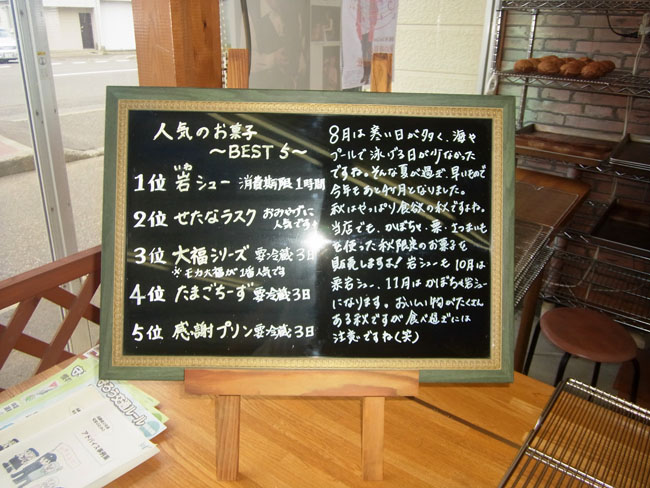 人気のお菓子
～BEST 5～
いわ
1位 岩シュー 消費期限1時間
2位 せたなラスク おみやげに
人気です
3位 大福シリーズ 要冷蔵3日
※モカ大福が1番人気です
4位 たまごちーず 要冷蔵3日
5位 感謝プリン 要冷蔵3日
8月は寒い日が多く、海や
プールで泳げる日が少なかった
ですね。そんな夏が過ぎ、早いもので
今年もあと4ケ月となりました。
秋はやっぱり食欲の秋ですよね。
当店でも、かぼちゃ・栗・さつまいも
を使った秋限定のお菓子を
販売しますよ!岩シューも10月は
栗岩シュー、11月はかぼちゃ岩シュー
になります。おいしい物がたくさん
ある秋ですが食べ過ぎには
注意ですね(笑)
アドバイス事例集